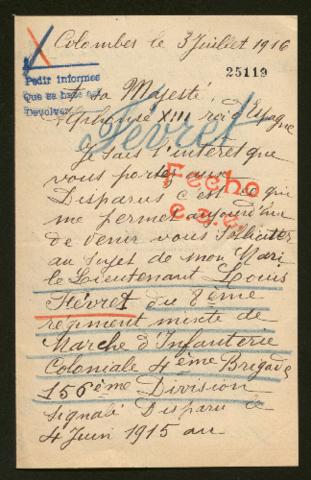 Colombes le 3 Juillet 1916
25119
Pedir informes
Que se haga
Devolver
A sa Majesté
Alphonse XIII roi d'Espagne
Févret
Je sais l'intérêt que
vous portez aux
Fecho
Disparus c'est ce qui
c.a.e.
me permet aujourd'hui
de venir vous solliciter
au sujet de mon Mari
le Lieutenant Louis
Févret du 8ème
régiment mixte de
Marche d'Infanterie
Coloniale 4ème Brigade
156ème Division
signalé Disparu le
4 Juin 1915 au